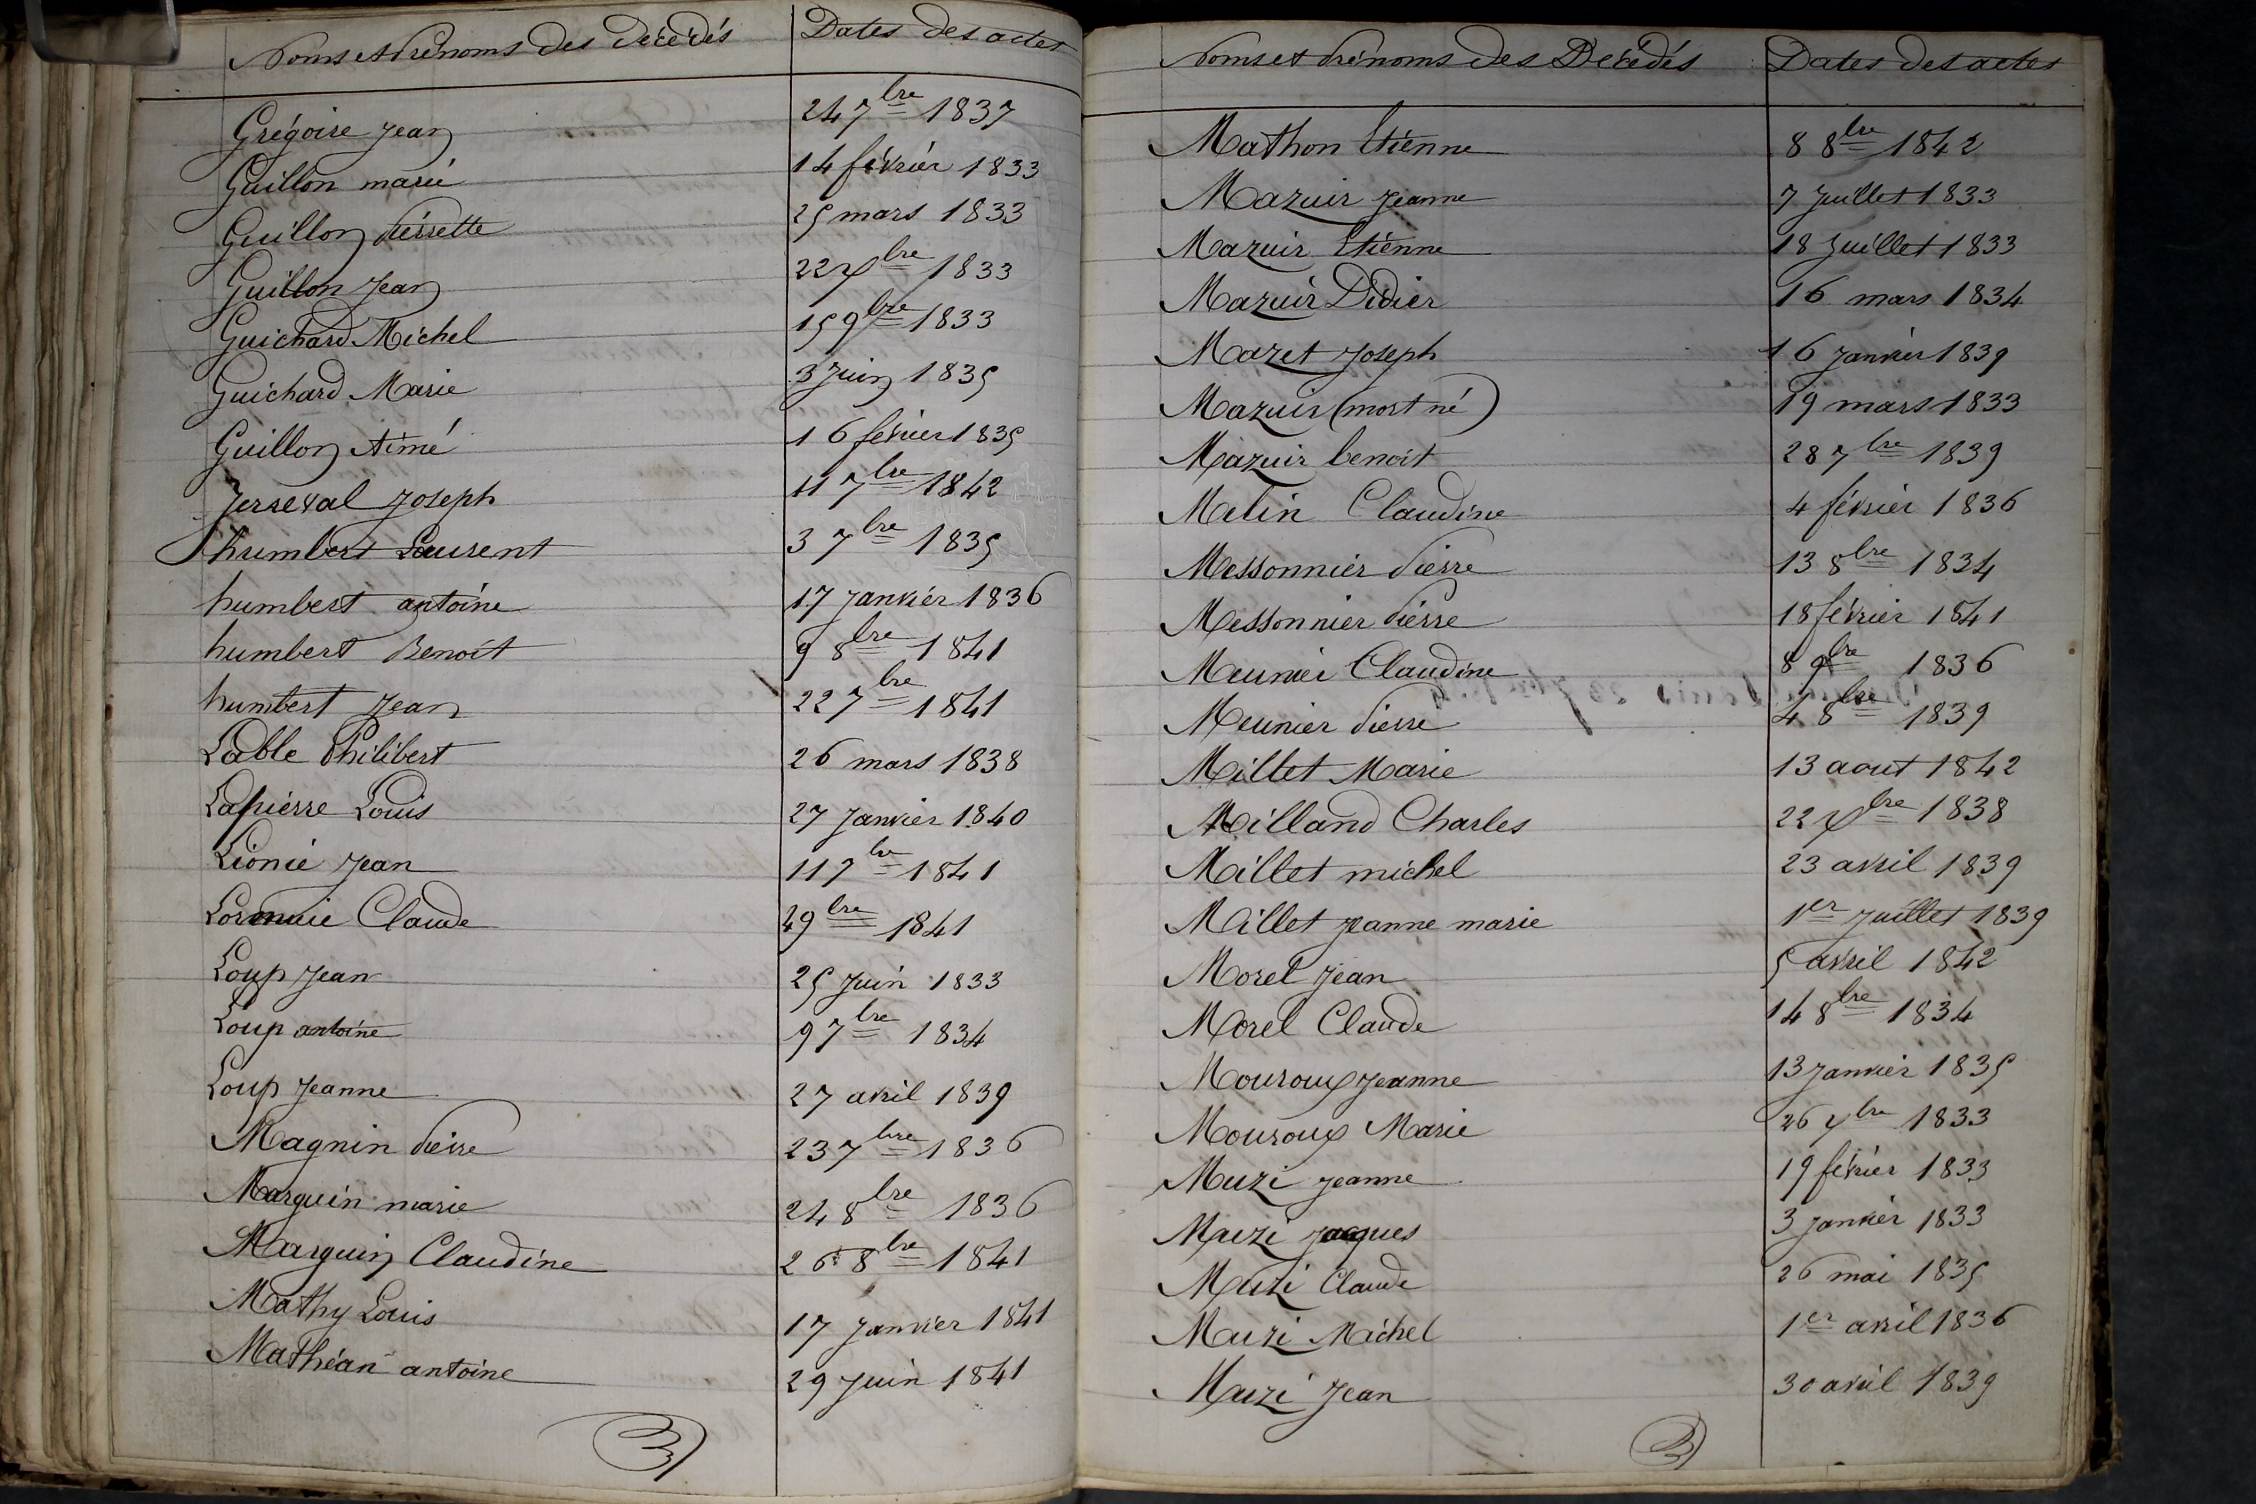 Noms et Prénoms des Décédés Dates des actes
Grégoire Jean 24 7bre 1837
Guillon marie 14 février 1833
Guillon pierrette 25 mars 1833
Guillon Jean 22 xbre 1833
Guichard Michel 15 9bre 1833
Guichard Marie 3 Juin 1835
Guillon Aimé 16 février 1835
Jerseval Joseph 11 7bre 1842
humbert Laurent 3 7bre 1835
humbert antoine 17 Janvier 1836
humbert Benoit 9 8bre 1841
humbert Jean 22 7bre 1841
Lable Philibert 26 mars 1838
Lapierre Louis 27 Janvier 1840
Lionie Jean 11 7bre 1841
Claude 1841
Loup Jean 25 Juin 1833
Loup antoine 9 7bre 1834
Loup Jeanne 27 avril 1839
Magnin Pierre 23 7bre 1836
Marguin marie 24 8bre 1836
Marguin Claudine 26 8bre 1841
Mathy Louis 17 Janvier 1841
Mathéan antoine 29 Juin 1841
Noms et Prénoms des Décédés Dates des actes
Mathon Etienne 8 8bre 1842
Mazuir Jeanne 7 Juillet 1833
Mazuir Etienne 18 Juillet 1833
Mazuir Didier 16 mars 1834
Mazet Joseph 16 Janvier 1839
Mazuir (mort né) 19 mars 1833
Mazuir benoit 28 7bre 1839
Melin Claudine 4 février 1836
Messonnier Pierre 13 8bre 1834
Messonnier Pierre 18 février 1841
Meunier Claudine 8 9bre 1836
Meunier Pierre 4 8bre 1839
Millet Marie 13 aout 1842
Milland Charles 22 xbre 1838
Millet michel 23 avril 1839
Millet Jeanne marie 1er Juillet 1839
Morel Jean 5 avril 1842
Morel Claude 14 8bre 1834
Mouroux Jeanne 13 Janvier 1835
Mouroux Marie 26 xbre 1833
Muzi Jeanne 19 février 1833
Muzi Jacques 3 Janvier 1833
Muzi Claude 26 mai 1835
Muzi Michel 1er avril 1836
Muzi Jean 30 avril 1839